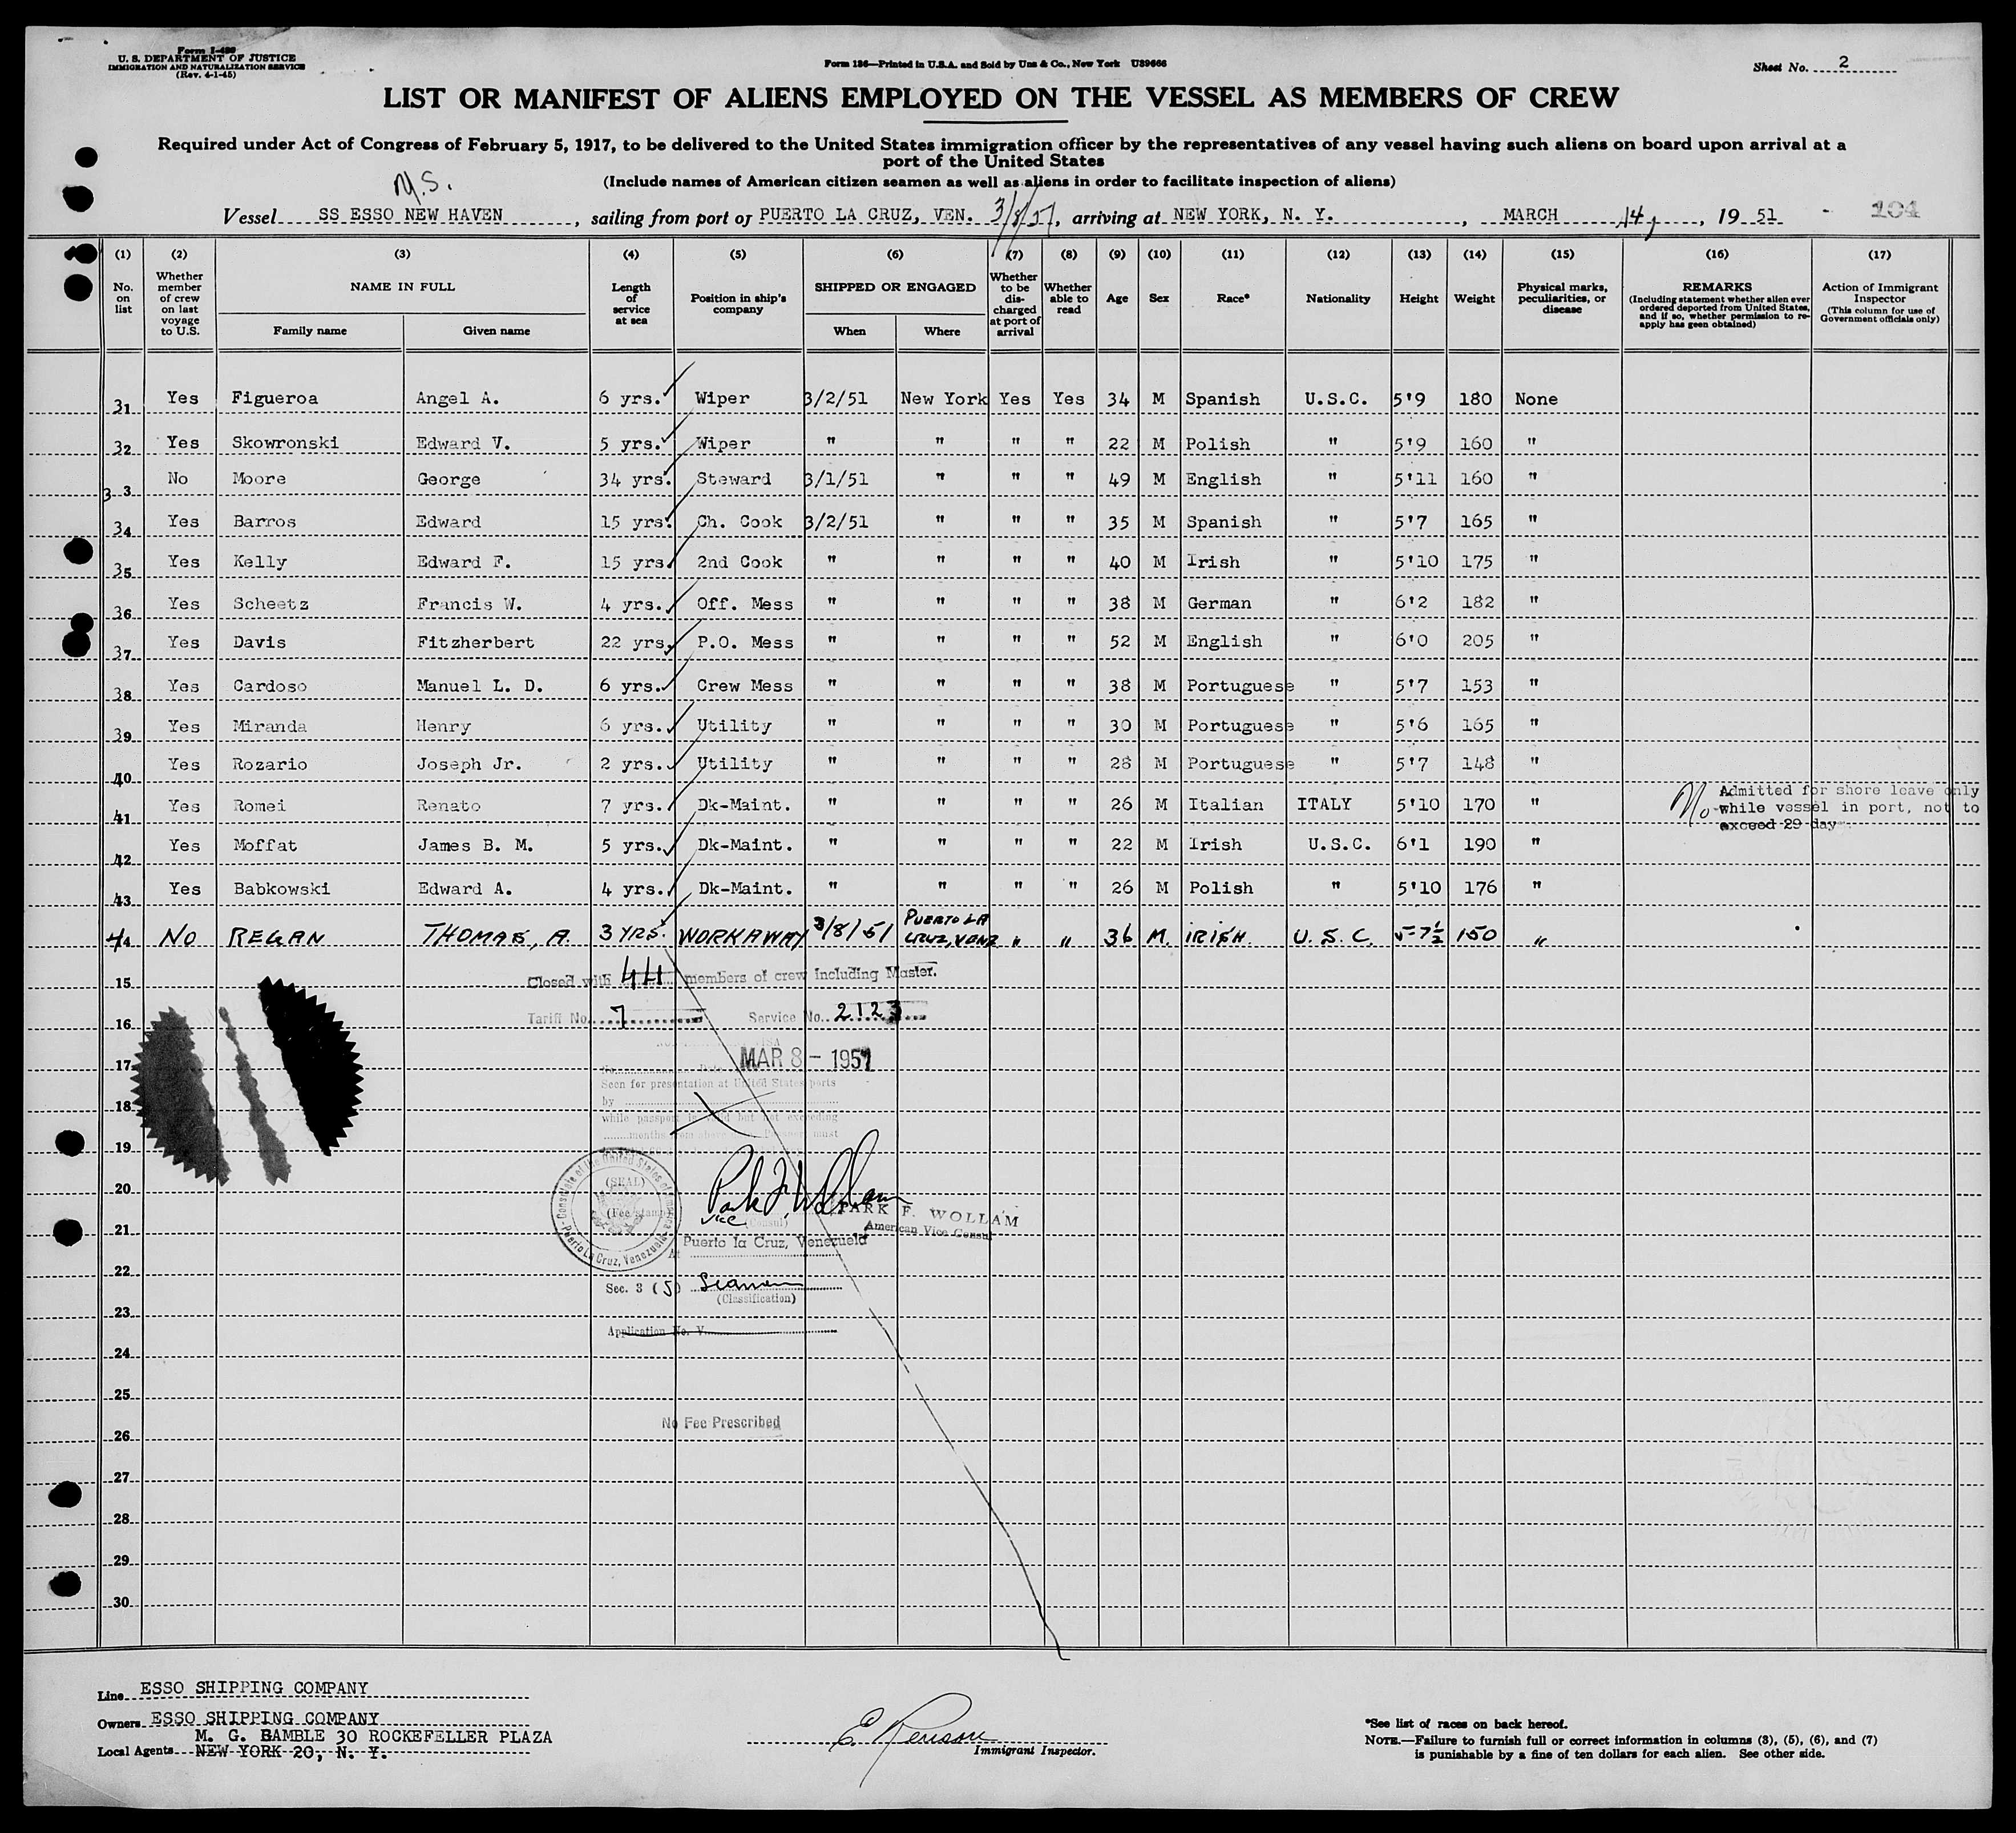 Form I-480
U. S. DEPARTMENT OF JUSTICE
IMMIGRATION AND NATURALIZATION SERVICE
(Rev. 4-1-45)
Form 136—Printed in U.S.A. and Sold by Unz & Co., New York U39666
Sheet No. 2
LIST OR MANIFEST OF ALIENS EMPLOYED ON THE VESSEL AS MEMBERS OF CREW
Required under Act of Congress of February 5, 1917, to be delivered to the United States immigration officer by the representatives of any vessel having such aliens on board upon arrival at a
port of the United States
(Include names of American citizen seamen as well as aliens in order to facilitate inspection of aliens)
M.S.
Vessel SS ESSO NEW HAVEN, sailing from port of PUERTO LA CRUZ, VEN. 3/8/51, arriving at NEW YORK, N. Y., MARCH 14, 19 51 104
(1) (2) (3) (4) (5) (6) (7) (8) (9) (10) (11) (12) (13) (14) (15) (16) (17)
No. on list
Whether member of crew on last voyage to U.S.
NAME IN FULL
Family name Given name
Length of service at sea
Position in ship's company
SHIPPED OR ENGAGED
When Where
Whether to be discharged at port of arrival
Whether able to read
Age
Sex
Race*
Nationality
Height
Weight
Physical marks, peculiarities, or disease
REMARKS
(Including statement whether alien ever ordered deported from United States, and if so, whether permission to re-apply has geen obtained)
Action of Immigrant Inspector
(This column for use of Government officials only)
31 Yes Figueroa Angel A. 6 yrs. Wiper 3/2/51 New York Yes Yes 34 M Spanish U.S.C. 5'9 180 None
32 Yes Skowronski Edward V. 5 yrs. Wiper " " " " 22 M Polish " 5'9 160 "
33 No Moore George 34 yrs. Steward 3/1/51 " " " 49 M English " 5'11 160 "
34 Yes Barros Edward 15 yrs. Ch. Cook 3/2/51 " " " 35 M Spanish " 5'7 165 "
35 Yes Kelly Edward F. 15 yrs. 2nd Cook " " " " 40 M Irish " 5'10 175 "
36 Yes Scheetz Francis W. 4 yrs. Off. Mess " " " " 38 M German " 6'2 182 "
37 Yes Davis Fitzherbert 22 yrs. P.O. Mess " " " " 52 M English " 6'0 205 "
38 Yes Cardoso Manuel L. D. 6 yrs. Crew Mess " " " " 38 M Portuguese " 5'7 153 "
39 Yes Miranda Henry 6 yrs. Utility " " " " 30 M Portuguese " 5'6 165 "
40 Yes Rozario Joseph Jr. 2 yrs. Utility " " " " 28 M Portuguese " 5'7 148 "
41 Yes Romei Renato 7 yrs. Dk-Maint. " " " " 26 M Italian ITALY 5'10 170 " No Admitted for shore leave only
while vessel in port, not to
exceed 29 day
42 Yes Moffat James B. M. 5 yrs. Dk-Maint. " " " " 22 M Irish U.S.C. 6'1 190 "
43 Yes Babkowski Edward A. 4 yrs. Dk-Maint. " " " " 26 M Polish " 5'10 176 "
44 NO REGAN THOMAS, A. 3 YRS. WORKAWAY 3/8/51 PUERTO LA CRUZ, VENZ " " 36 M. IRISH. U. S. C. 5-7½ 150 "
Closed with 44 members of crew including Master.
15
Tariff No. 7 Service No. 2123
16
MAR 8 - 1951
17
Seen for presentation at United States ports
by
18
while passport is valid but not exceeding
months
must
19
Consulate of the United States of America
Puerto La Cruz, Venezuela
(SEAL)
(Fee stamp)
Park F. Wollam
20
PARK F. WOLLAM
Vice (Consul)
American Vice Consul
21
At Puerto la Cruz, Venezuela
22
Sec. 3 (5) Seamen
(Classification)
23
Application No. V
24
25
No Fee Prescribed
26
27
28
29
30
Line ESSO SHIPPING COMPANY
Owners ESSO SHIPPING COMPANY
M. G. GAMBLE 30 ROCKEFELLER PLAZA
Local Agents NEW YORK 20, N. Y.
Immigrant Inspector.
*See list of races on back hereof.
NOTE.—Failure to furnish full or correct information in columns (3), (5), (6), and (7)
is punishable by a fine of ten dollars for each alien. See other side.